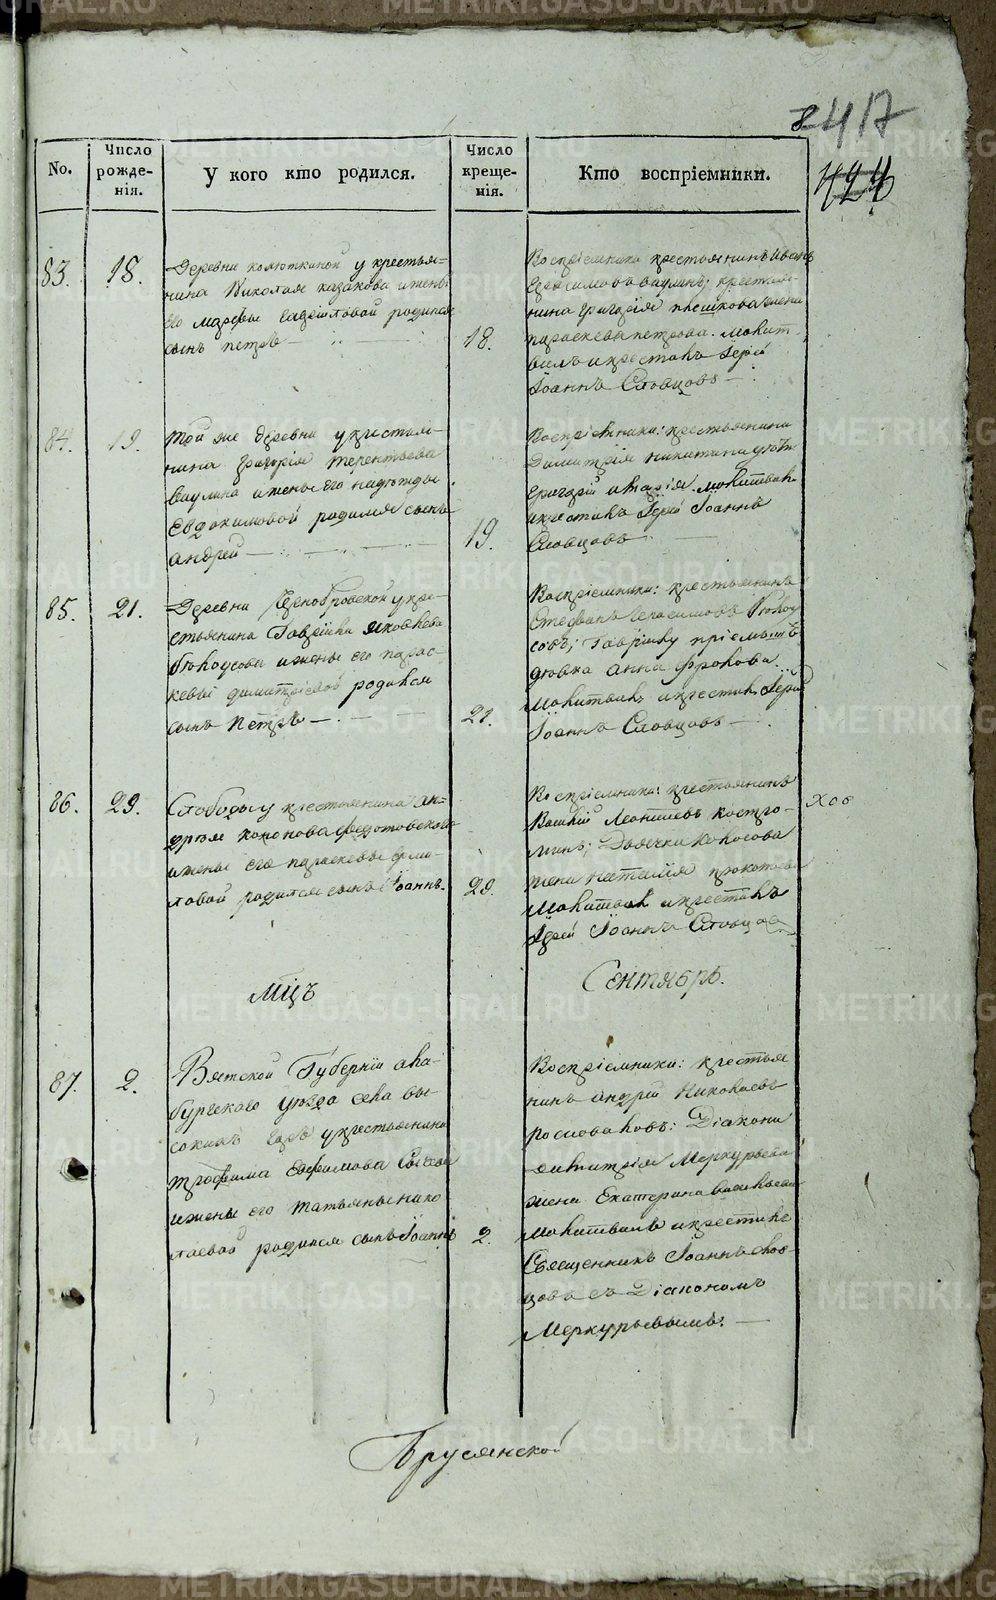 417
No.
Число рожде-нія.
У кого кто родился.
Число креще-нія.
Кто воспріемники.
83.
18.
Деревни колюткиной у крестья-
нина Николая казакова и жены
Его марфы родился
сынъ петръ
18.
Воспріемники крестьянинъ Иванъ
ваулинъ; крестья-
нина григорія пѣшкова жена
параскева петрова. молит-
вилъ и крестилъ Іерей
Іоаннъ Словцовъ
84.
19.
Той же деревни у крестья-
нина григорія терентьева
ваулина и жены его надежды
Евдокимовой родился сынъ
андрей
19.
Воспріемники: крестьянина
Димитрія никитина дѣти
Григорій и марія. молитвилъ
и крестилъ Іерей Іоаннъ
Словцовъ
85.
21.
Деревни Чернобровской у кре-
стьянина Гаврилы яковлева
бѣлоусова и жены его парас-
кевы димитріевой родился
сынъ Петръ
21.
Воспріемники: крестьянинъ
Стефанъ Герасимовъ бѣлоу
совъ; Гаврилу пріемышъ
дѣвка анна фролова.
Молитвилъ и крестилъ Іерей
Іоаннъ Словцовъ
86.
29.
Слободы у крестьянина ан-
дрея кононова федотовскаго
и жены его параскевы
родился сынъ Іоаннъ.
29.
Воспріемники: крестьянинъ
Василій Леонтьевъ костро-
минъ; Дьячка колосова
жена наталія
Молитвилъ и крестилъ
Іерей Іоаннъ Словцовъ
Мцъ
Сентябрь.
87.
2.
Вятской Губерніи ела-
бужскаго уѣзда села вы-
сокихъ горъ у крестьянина
трофима Ефимова
и жены его татьяны нико
лаевой родился сынъ Іоаннъ
2.
Воспріемники: крестья
нинъ андрей Николаевъ
Діакона
димитрія Меркурьева
жена Екатерина васильева
молитвилъ и крестилъ
Священникъ Іоаннъ слов-
цовъ съ Діакономъ
Меркурьевымъ.
Брусянской
METRIKI.GASO-URAL.RU